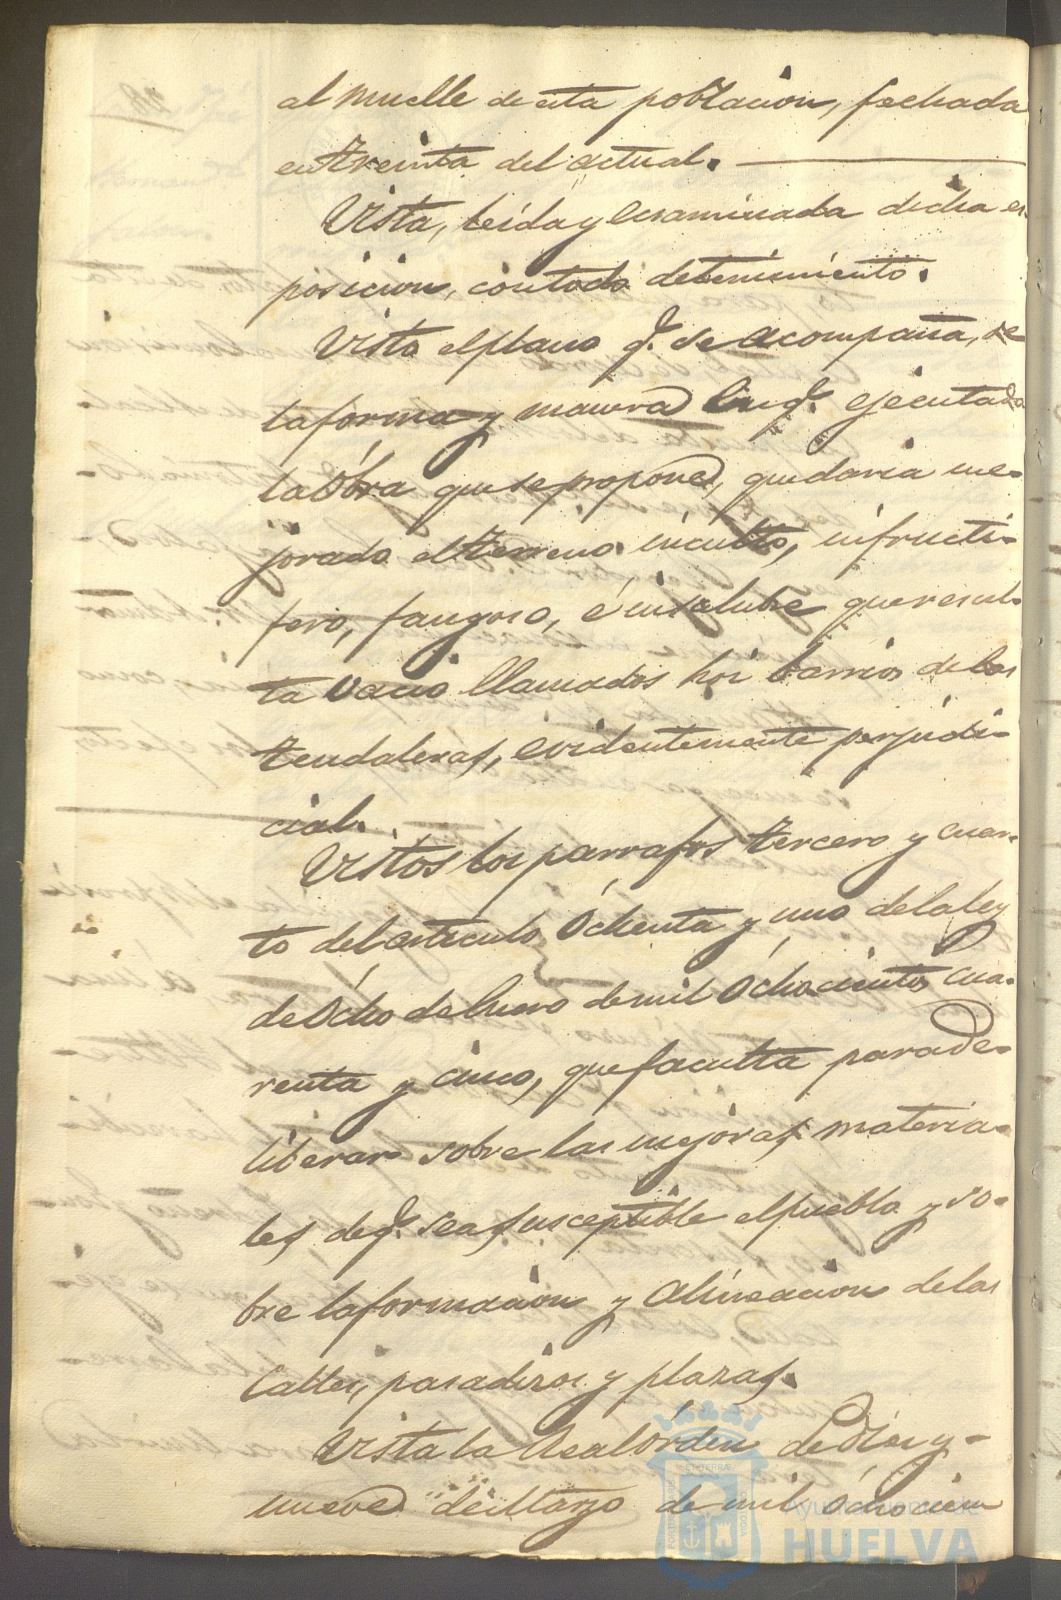 al muelle de esta poblacion, fechada
en treinta del actual.
Vista, leida y ecsaminada dicha es-
posicion, con todo detenimiento.
Visto el plano q.e se acompaña, de
la forma y manera en q.e ejecutada
la óbra que se propone, quedaria me-
jorado el terreno inculto, infructi-
fero, fangoso, é insalubre que resul-
ta vacio llamados hoi barrios de las
tendaleras, evidentemente perjudi-
cial.
Vistos los parrafos tercero y cuar-
to del articulo óchenta y uno de la ley
de ócho de Enero de mil óchocientos cua-
renta y cinco, que faculta para de-
liberar sobre las mejoras materia-
les de q.e sea susceptible el pueblo y so-
bre la formacion y alineacion de las
Calles, pasadizos y plazas.
Vista la Real órden de diez y-
nueve de Marzo de mil óchocien
Ayuntamiento de
HUELVA